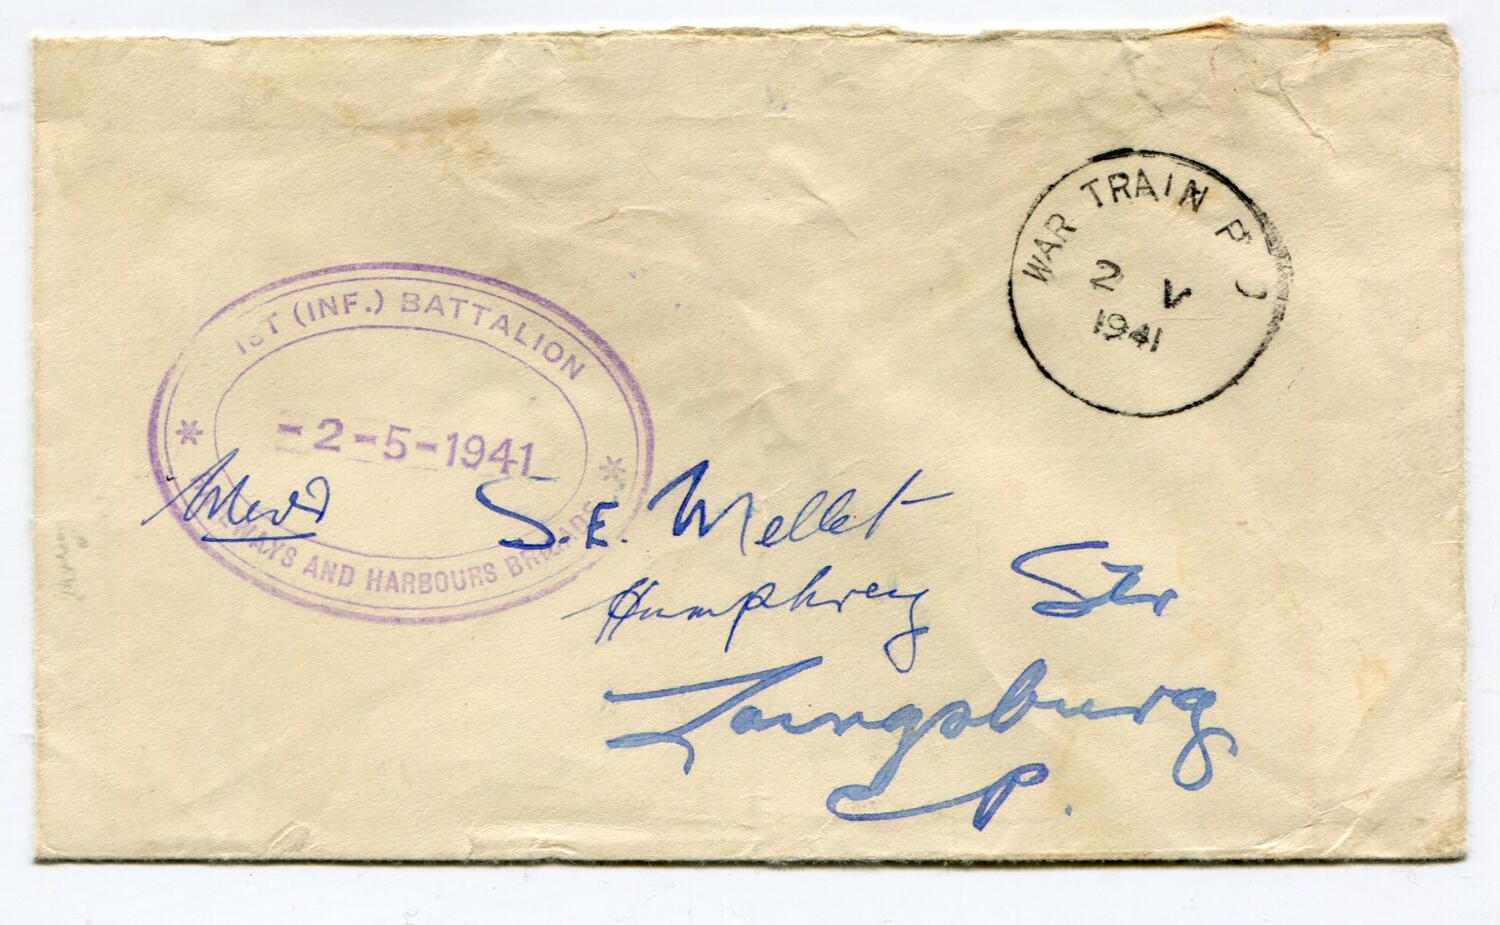 WAR TRAIN P
2 V
1941
1ST (INF.) BATTALION
-2-5-1941
WAYS AND HARBOURS BRIGADE
Mevr S.E. Mellet
Humphrey Str
Laingsburg
CP.